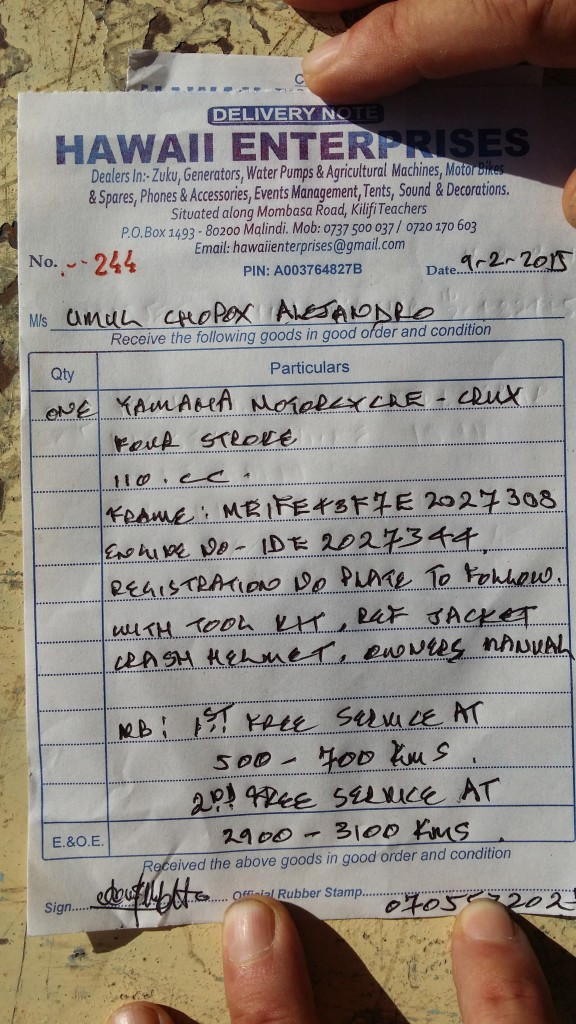 DELIVERY NOTE
HAWAII ENTERPRISES
Dealers In:- Zuku, Generators, Water Pumps & Agricultural Machines, Motor Bikes
& Spares, Phones & Accessories, Events Management, Tents, Sound & Decorations.
Situated along Mombasa Road, Kilifi Teachers
P.O.Box 1493 - 80200 Malindi. Mob: 0737 500 037 / 0720 170 603
Email: hawaiienterprises@gmail.com
No. 244 PIN: A003764827B Date 9-2-2015
M/s UMUL CHOPOX ALEJANDRO
Receive the following goods in good order and condition
Qty Particulars
ONE YAMAHA MOTORCYCRE - CRUX
FOUR STROKE
110.CC.
FRAME: ME1FE43F7E 2027308
ENGINE NO- 1DE 2027344
REGISTRATION NO PLATE TO FOLLOW.
WITH TOOL KIT, REF JACKET
CRASH HELMET, OWNERS MANUAL
NB: 1ST FREE SERVICE AT
500 - 700 KMS.
2ND FREE SERVICE AT
E.&O.E. 2900 - 3100 KMS.
Received the above goods in good order and condition
Sign Official Rubber Stamp